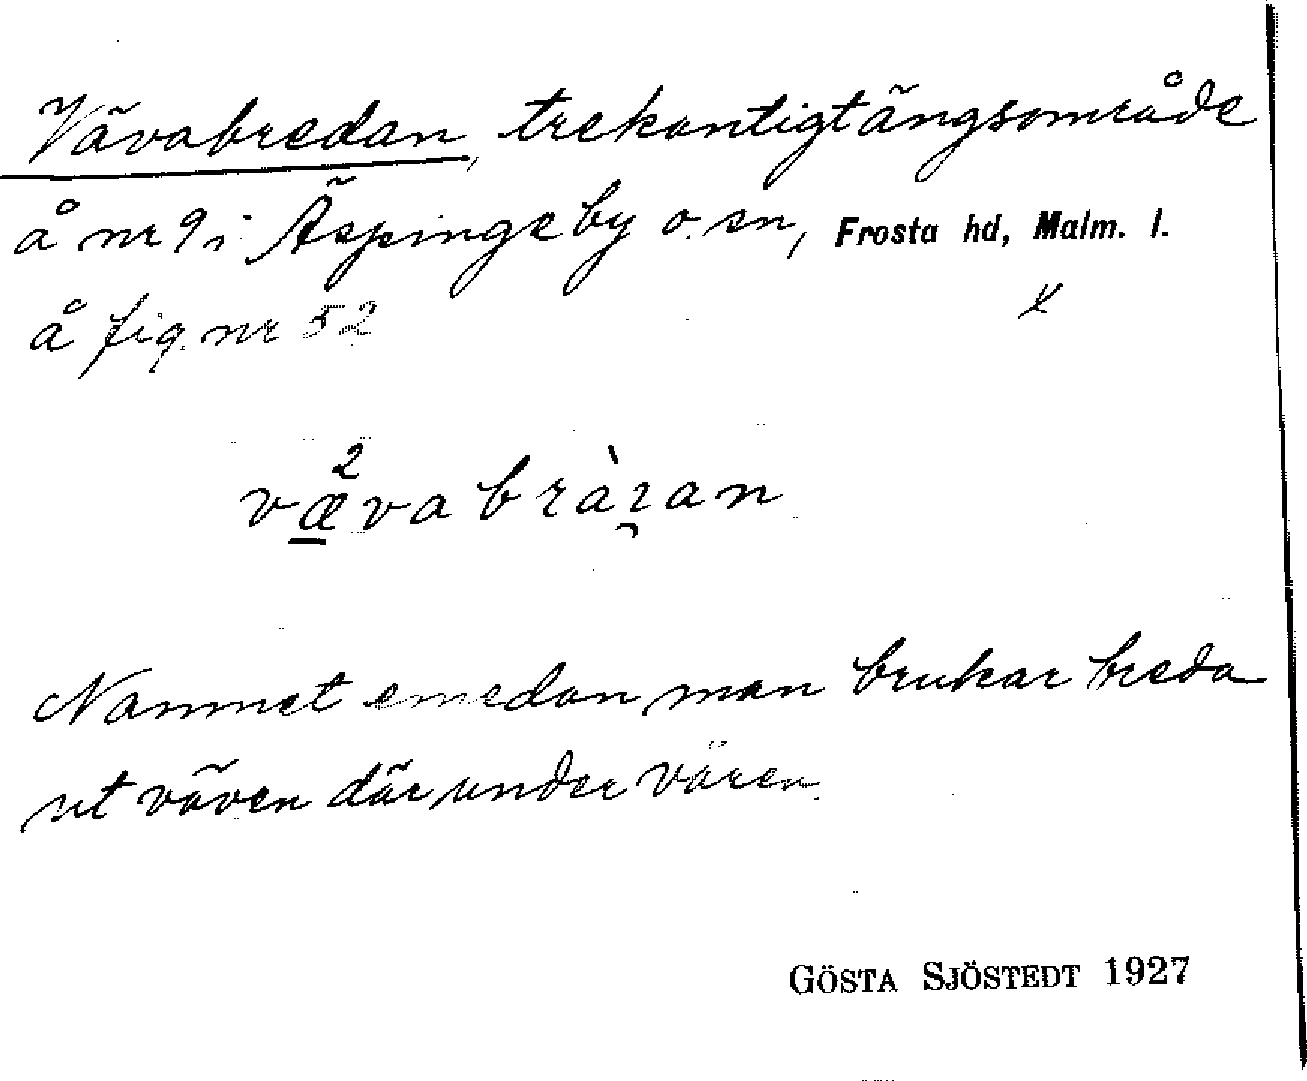 Vävabredan, trekantigt ängsområde
å nr 9 i Äspinge by o. sn, Frosta hd, Malm. l.
å fig. nr 52 x
væ²vabràran
Namnet emedan man brukar breda
ut väven där under våren.
GÖSTA SJÖSTEDT 1927